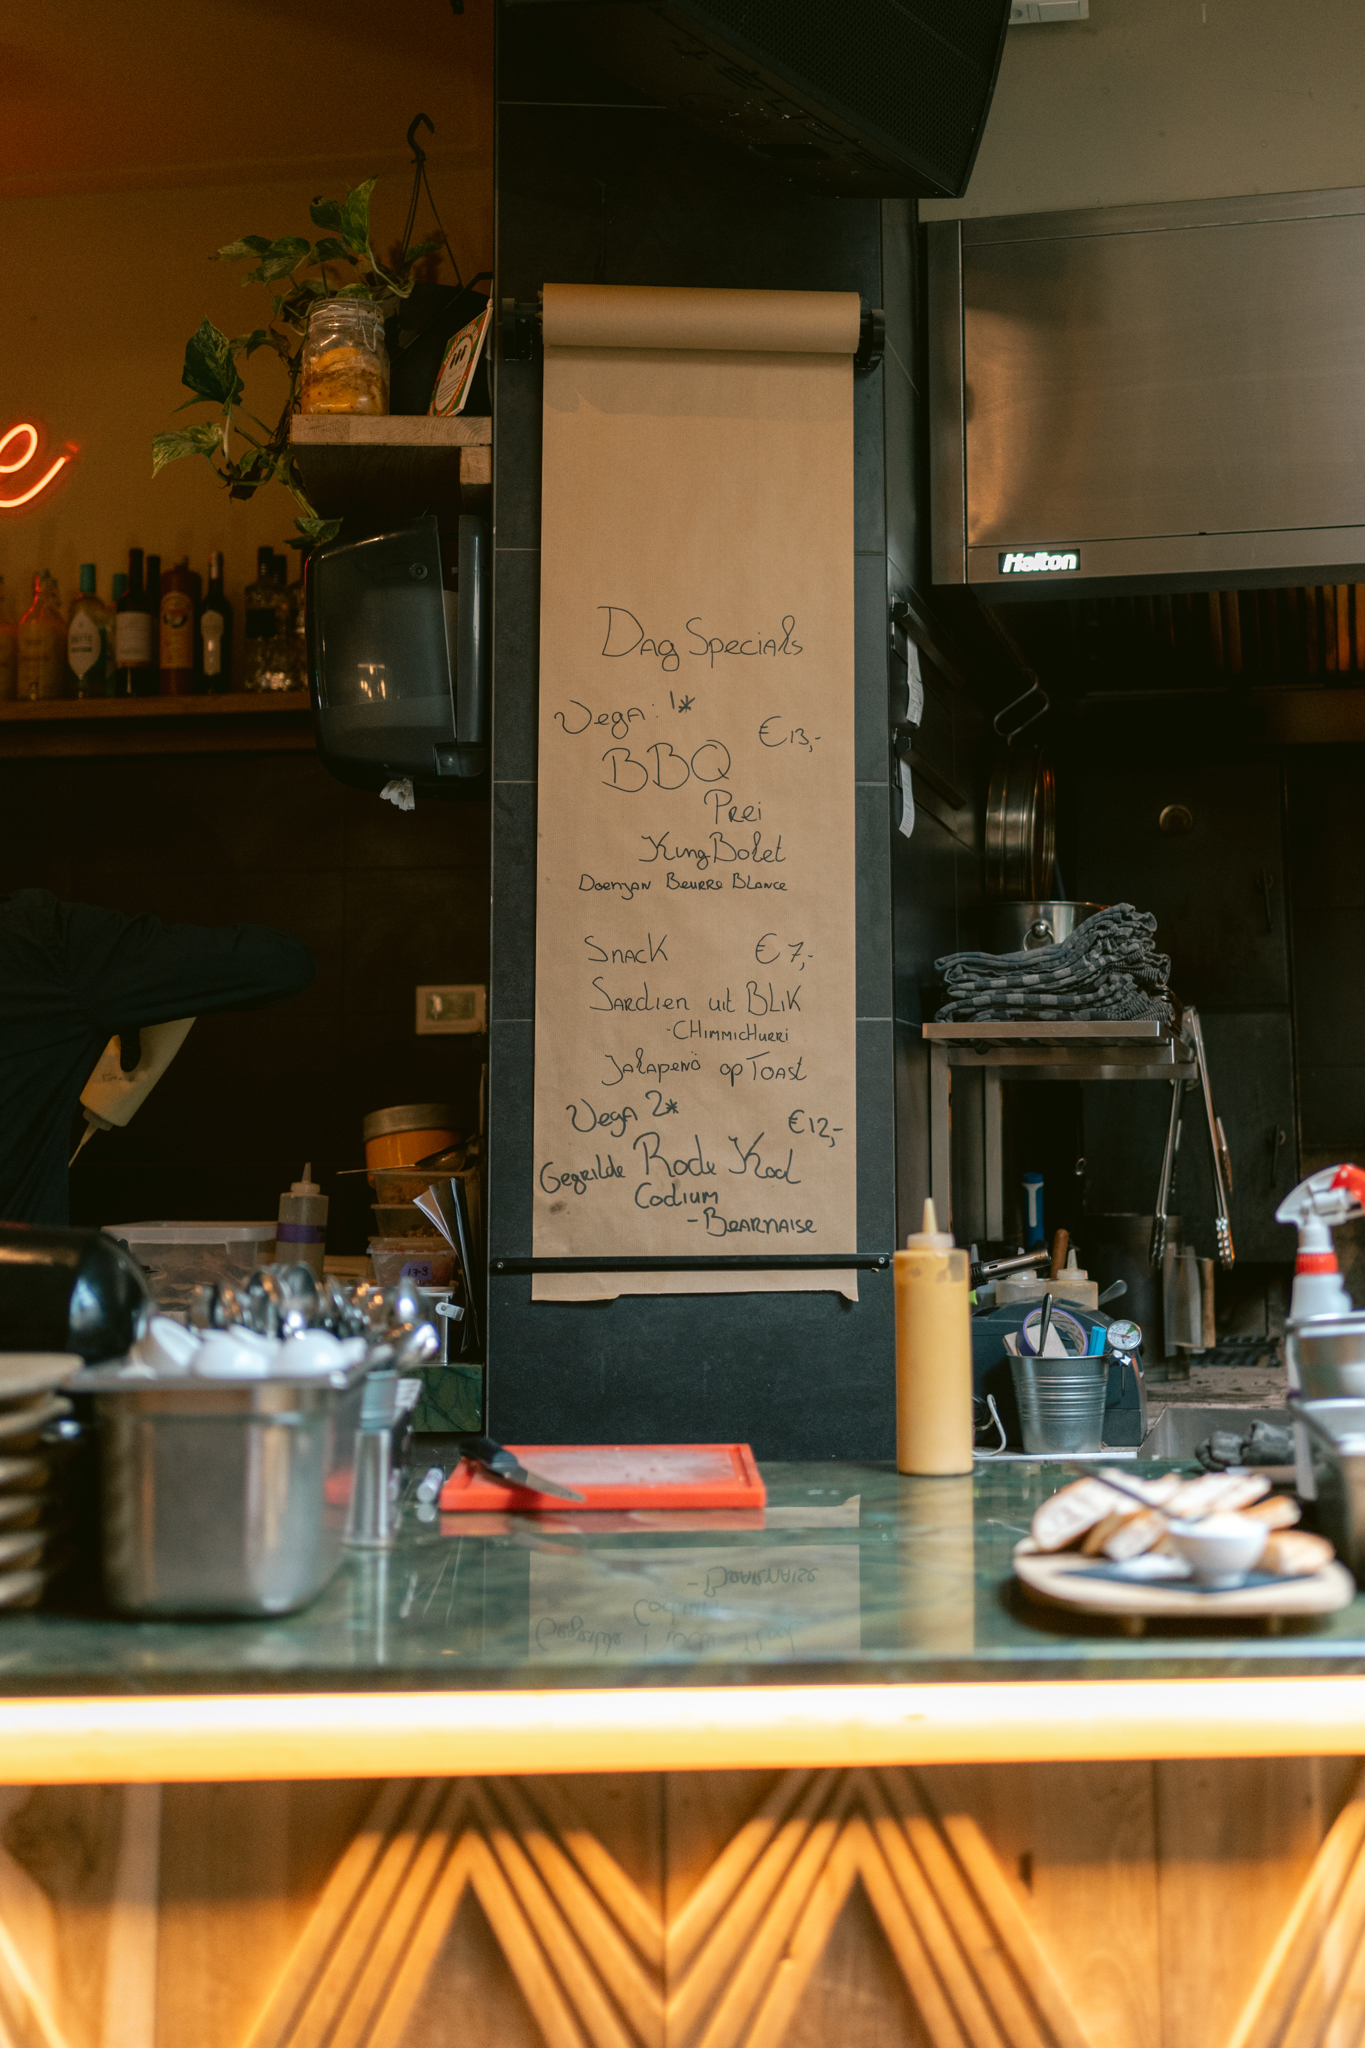 Halton
Dag Specials
Vega: 1*
€13,-
BBQ
Prei
King Bolet
Beurre Blance
Snack €7,-
Sardien uit Blik
-Chimmichurri
Jalapenö op Toast
Vega 2*
€12,-
Gegrilde Rode Kool
Codium
-Bearnaise
17-9